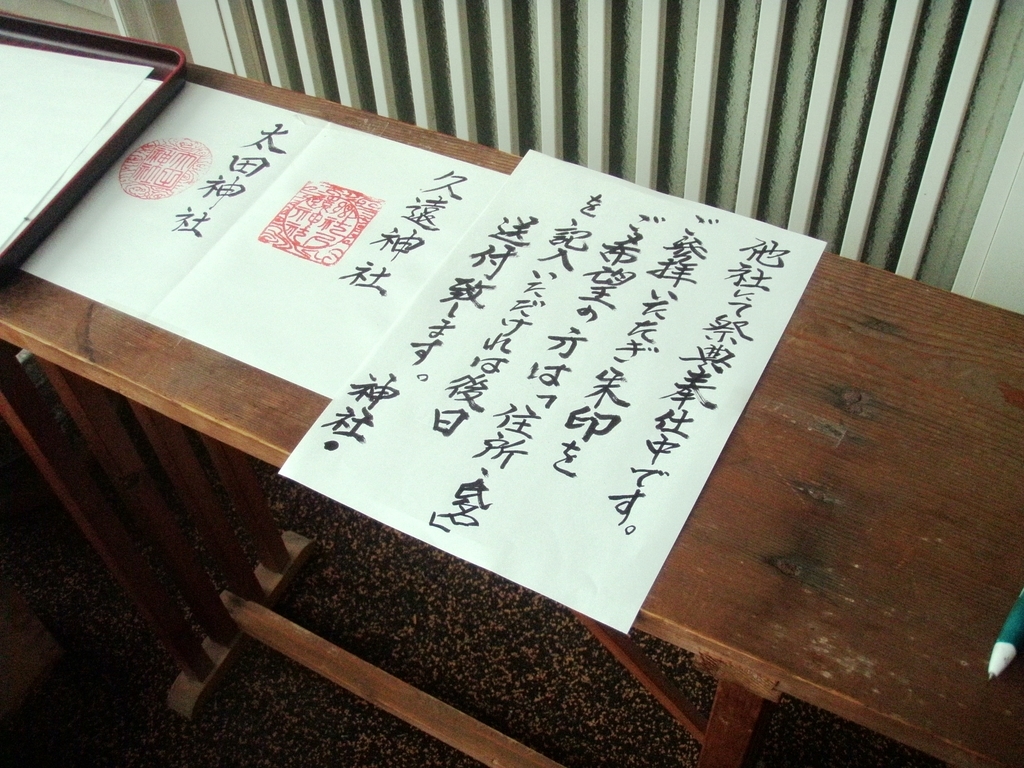 他社にて祭典奉仕中です。
ご参拝いただき朱印を
ご希望の方は「住所、氏名」
を記入いただければ後日
送付致します。
神社
久遠神社
太田神社